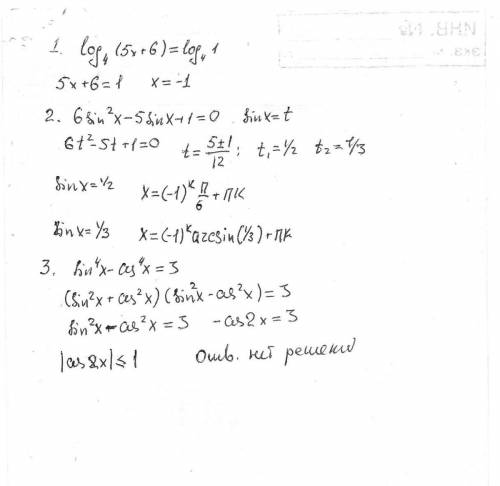 1. log₄(5x+6)=log₄1
5x+6=1 x=-1
2. 6sin²x-5sinx+1=0 sinx=t
6t²-5t+1=0 t=5±1/12; t₁=1/2 t₂=1/3
sinx=1/2 x=(-1)ᵏ П/6+ПК
sinx=1/3 x=(-1)ᵏarcsin(1/3)+ПК
3. sin⁴x-cos⁴x=3
(sin²x+cos²x)(sin²x-cos²x)=3
sin²x-cos²x=3 -cos2x=3
|cos2x|≤1 Отв. нет решений